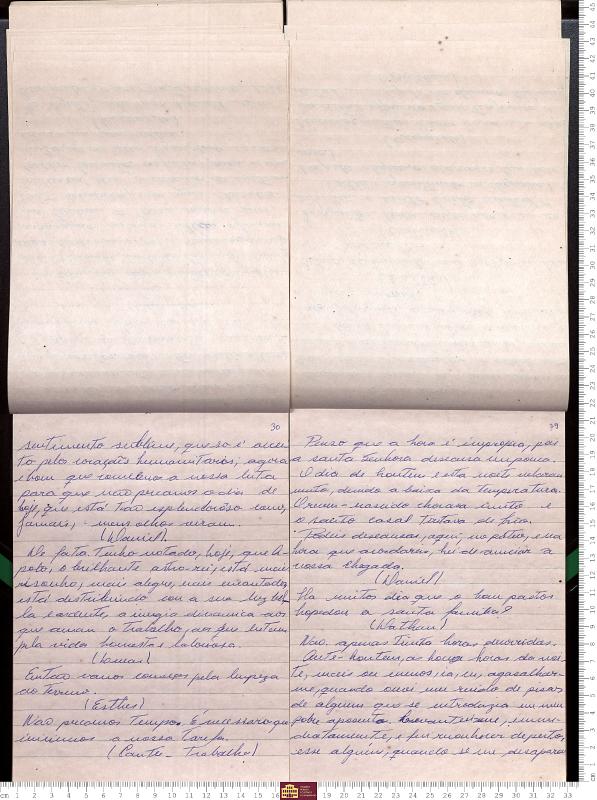 30
sentimento sublime, que só é aceito
pelos corações humanitarios; agora
é bom que comece a nossa luta
para que não percamos o dia de
hoje, que está tão esplendoroso como,
jamais, meus olhos viram.
(Daniel)
De fato, tenho notado, hoje, que A-
polo, o brilhante astro-rei, está mais
risonho, mais alegre, mais encantador,
está distribuindo com a sua luz bel-
la e ardente, a energia dinamica aos
que amam o trabalho, aos que lutam
pela vida honesta e laboriosa.
(Lomas)
Então vamos começar pela limpeza
do terreno.
(Esther)
Não percamos tempo. É necessario que
iniciemos a nossa tarefa.
(Canta - Trabalha)
39
Penso que a hora é impropria, pois
a santa Senhora descansa um pouco.
O dia de hontem e esta noite
muito, devido a baixa da temperatura.
O recem-nascido chorava muito e
o santo casal tiritava de frio.
Podeis descansar, aqui, no páteo, e na
hora que acordarem, hei de anunciar a
vossa chegada.
(Daniel)
Ha muitos dias que o bom pastor
hospedou a santa familia?
(Nathan)
Não. apenas trinta horas decorridas.
Ante-hontem, a horas da noi-
te, mais ou menos, ia, eu, agasalhar-
me, quando ouvi um ruido de passos
de alguem que se introduzia em meu
pobre aposento. Levantei-me, imme-
diatamente, e fui reconhecer de perto,
esse alguem; quando se me